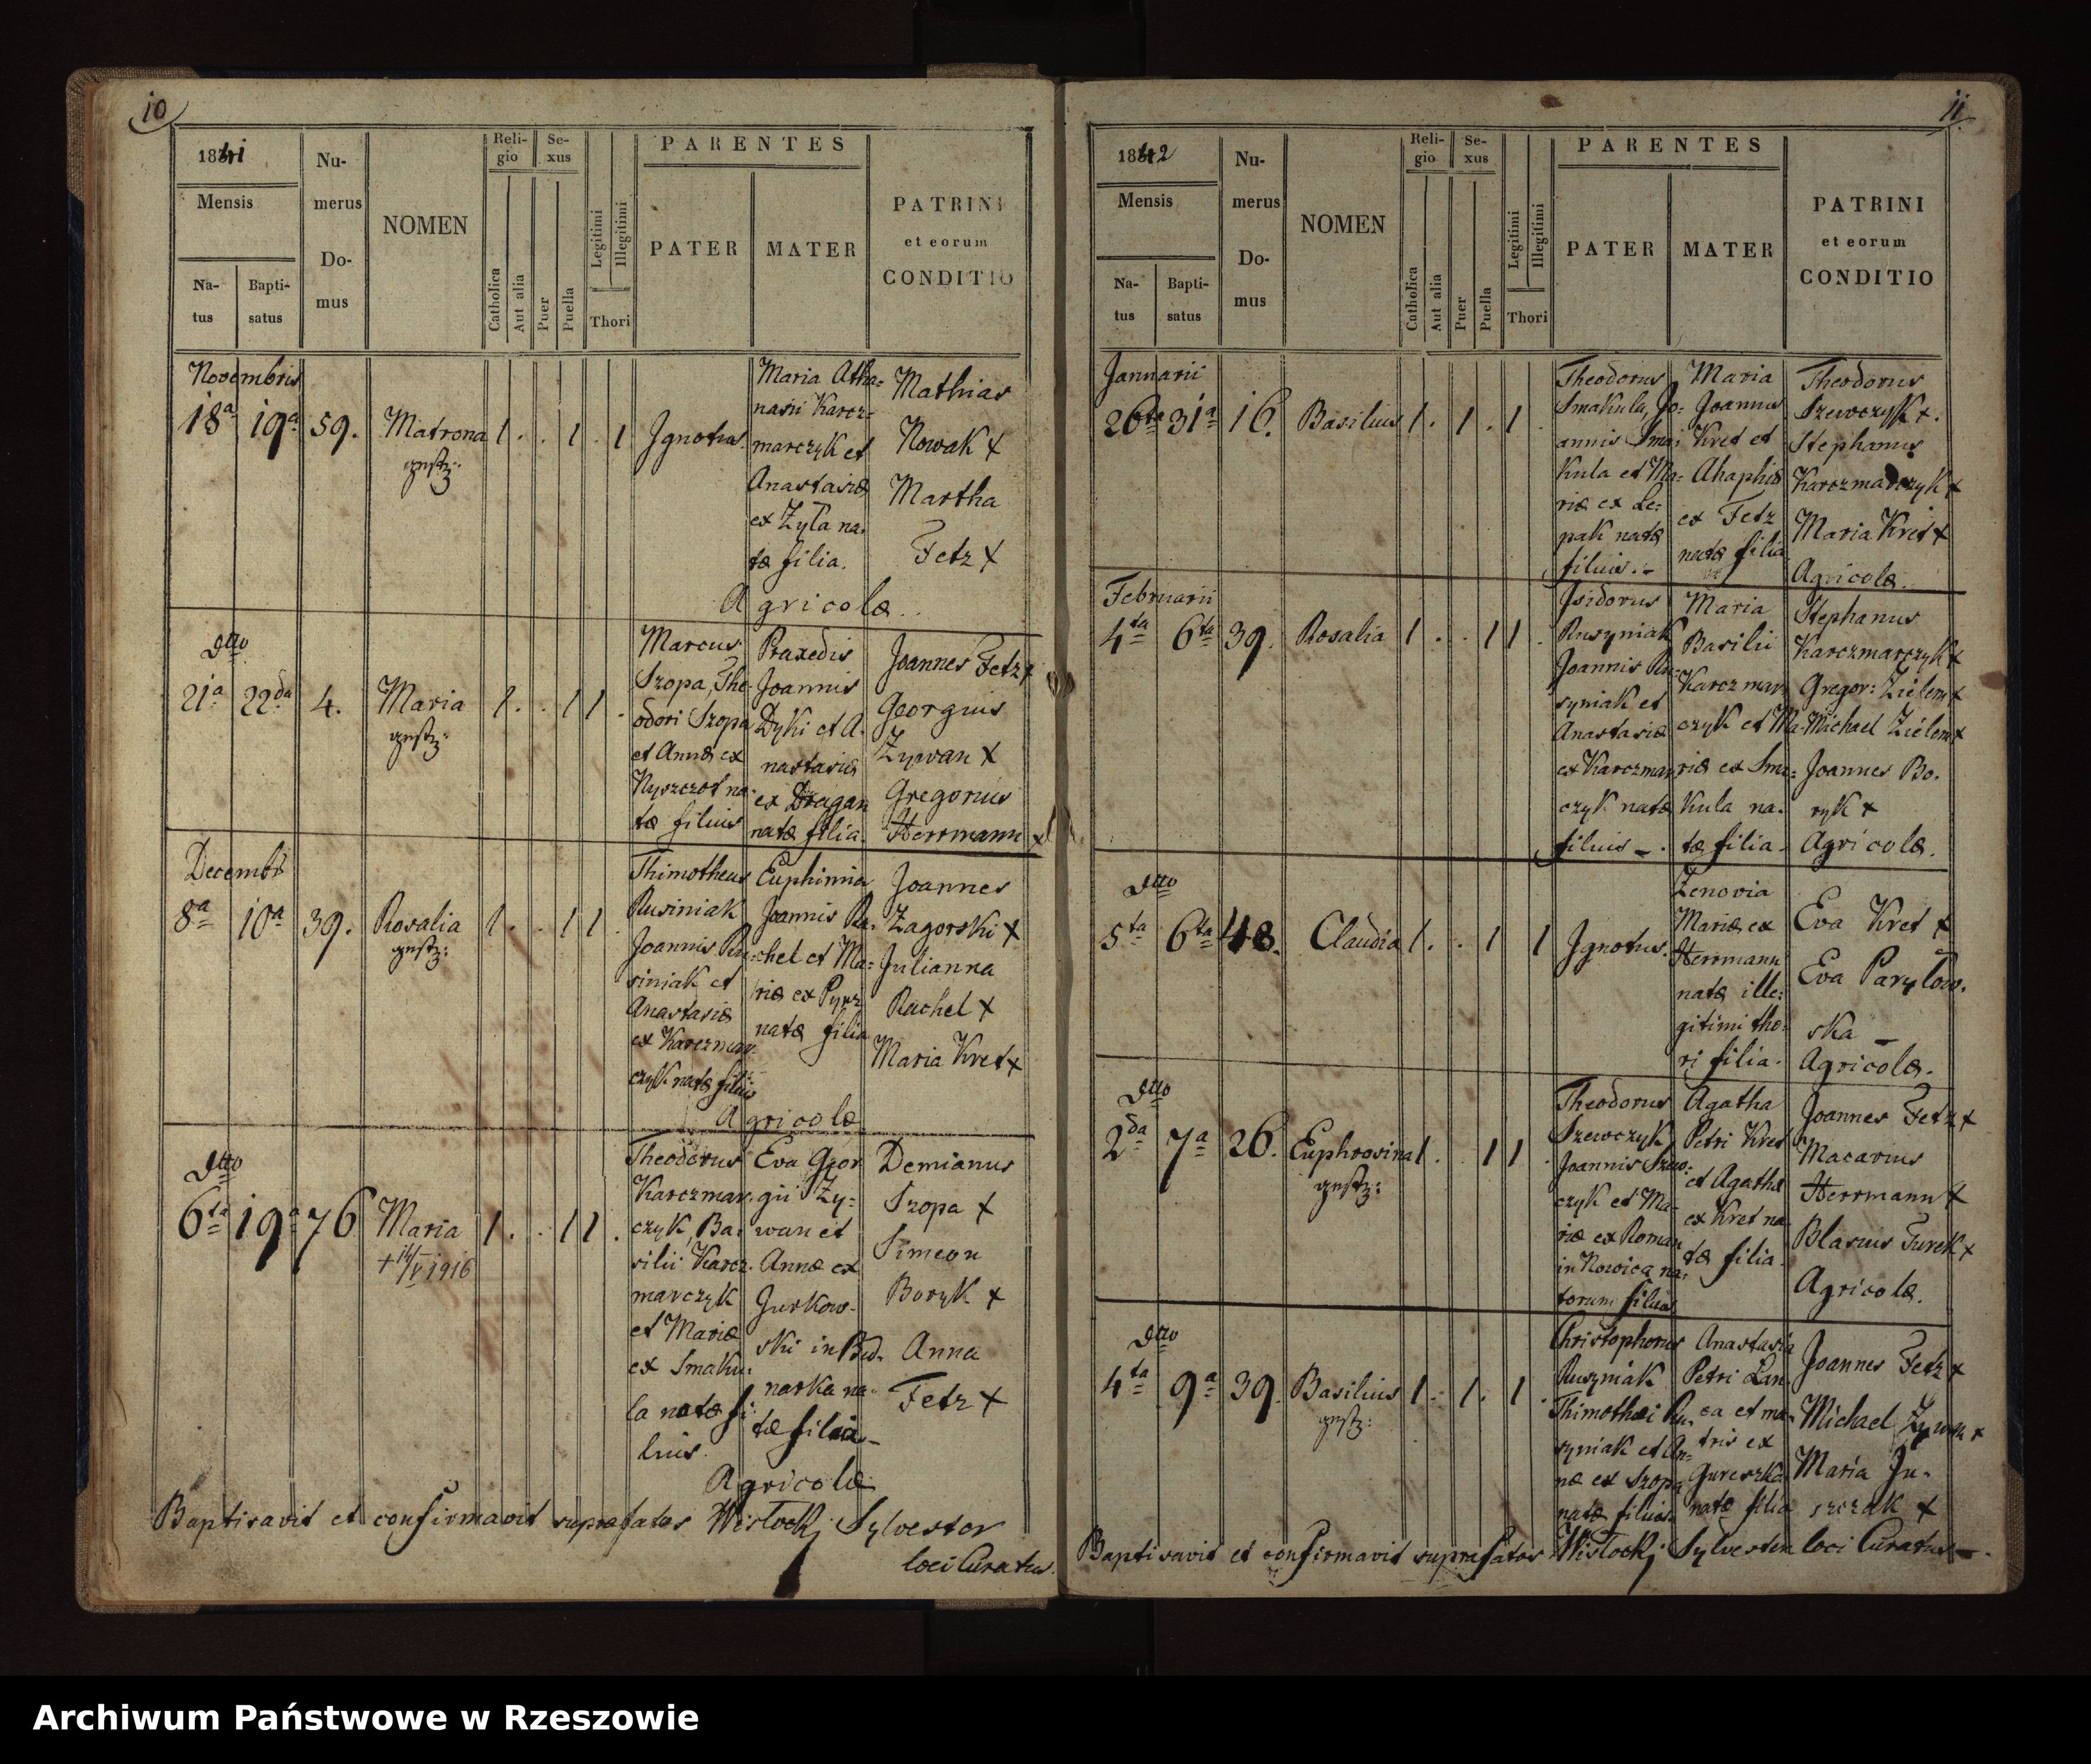 10
1841
Mensis
Na-
tus
Bapti-
satus
Nu-
merus
Do-
mus
NOMEN
Reli-
gio
Catholica
Aut alia
Se-
xus
Puer
Puella
Legitimi
Illegitimi
Thori
PARENTES
PATER
MATER
PATRINI
et eorum
CONDITIO
Novembris
18a 19a 59. Matrona 1 . . 1 . 1
Ignotus.
Maria Atha=
nasii Karcz=
marczyk et
Anastasiæ
ex Zyła na.
tæ filia.
Mathias
Nowak +
Martha
Fetz +
Agricolæ.
dtto
21a 22da 4. Maria 1 . . 1 1 .
Marcus
Szopa, The.
odori Szopa
et Annæ ex
Nyszczot na.
tæ filius
Praxedis
Joannis
Dyki et A.
nastasiæ
ex Dragan
natæ filia.
Joannes Fetz +
Georgius
Zywan +
Gregorius
Herrmann +
Decembr
8a 10a 39. Rosalia 1 . . 1 1 .
Thimotheus
Rusiniak
Joannis Ru=
siniak et
Anastasiæ
ex Karczmar.
czyk natæ filius
Euphimia
Joannis Ra.
chel et Ma=
riæ ex Pyrz
natæ filia
Joannes
Zagorski +
Julianna
Rachel +
Maria Kret +
Agricolæ
dtto
6ta 19a 76 Maria 1 . . 1 1 .
1916
Theodorus
Karczmar.
czyk, Ba.
silii Karcz.
marczyk
et Mariæ
ex Smaku.
la natæ fi.
lius.
Eva Geor
gii Zy=
wan et
Annæ ex
Jurkow.
ski in Bed.
narka na.
tæ filia
Demianus
Szopa +
Simeon
Boryk +
Anna
Fetz +
Agricolæ
Baptisavit et confirmavit suprafatos Wisłocki Sylvester
loci Curatus.
11
1842
Mensis
Na-
tus
Bapti-
satus
Nu-
merus
Do-
mus
NOMEN
Reli-
gio
Catholica
Aut alia
Se-
xus
Puer
Puella
Legitimi
Illegitimi
Thori
PARENTES
PATER
MATER
PATRINI
et eorum
CONDITIO
Januarii
26ta 31a 16. Basilius 1 . 1 . 1 .
Theodorus
Smakula, Jo=
annis Sma=
kula et Ma=
riæ ex Le=
pak natæ
filius.
Maria
Joannis
Kret et
Ahaphiæ
ex Fetz
natæ filia
Theodorus
Szewczyk +.
Stephanus
Karczmarczyk +
Maria Kret +
Agricolæ.
Februarii
4ta 6ta 39. Rosalia 1 . . 1 1 .
Isidorus
Rusyniak
Joannis Ru=
syniak et
Anastasiæ
ex Karczmar
czyk natæ
filius
Maria
Basilii
Karczmar
czyk et Ma=
riæ ex Sma=
kula na.
tæ filia.
Stephanus
Karczmarczyk +
Gregor: Zielem +
Michael Zielem +
Joannes Bo.
ryk +
Agricolæ.
dtto
5ta 6ta 48. Claudia 1 . . 1 1
Ignotus.
Zenovia
Mariæ ex
Herrmann
natæ ille=
gitimi tho.
ri filia.
Eva Kret +
Eva Paryłow.
ska
Agricolæ.
dtto
2da 7a 26. Euphrosina 1 . . 1 1 .
Theodorus
Szewczyk
Joannis Szew=
czyk et Ma=
riæ ex Roman
in Nowica na=
torum filius
Agatha
Petri Kret
et Agathæ
ex Kret na
tæ filia.
Joannes Fetz +
Macarius
Herrmann +
Blasius Turek +
Agricolæ.
dtto
4ta 9a 39. Basilius 1 . 1 . 1 .
Christophorus
Rusyniak
Thimothæi Ru.
syniak et An=
næ ex Szopa
natæ filius
Anastasia
Petri Lin
ca et ma=
tris ex
Gureszka
natæ filia
Joannes Fetz +
Michael Zywan +
Maria Ju.
szczak +
Baptisavit et confirmavit suprafatos Wisłocki Sylvester loci Curatus.
Archiwum Państwowe w Rzeszowie